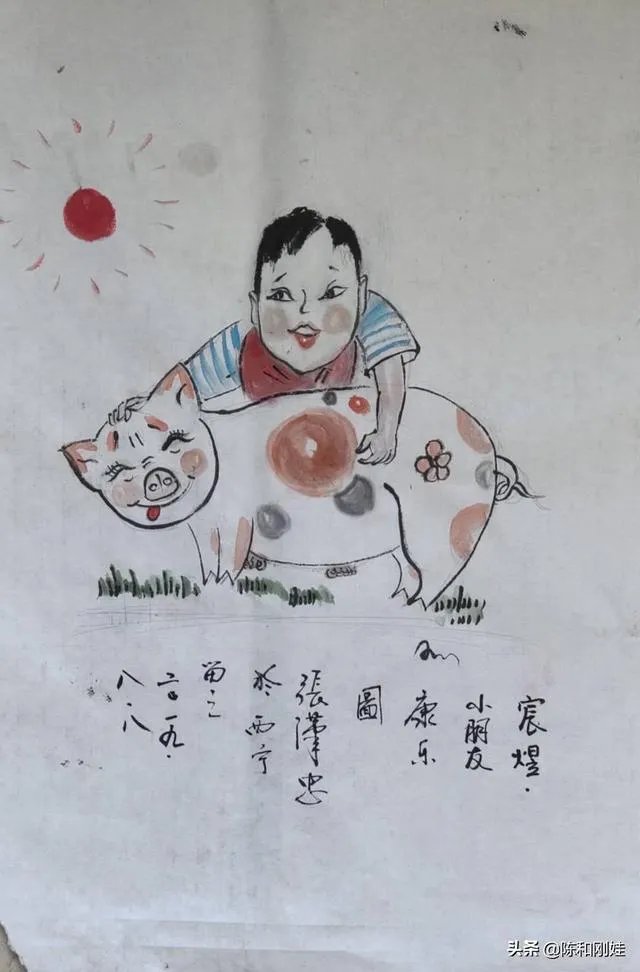 宸煜.
小朋友
康乐
圖
張漢忠
於西宁
留之
二〇一九.
八八
头条 @陈和刚娃